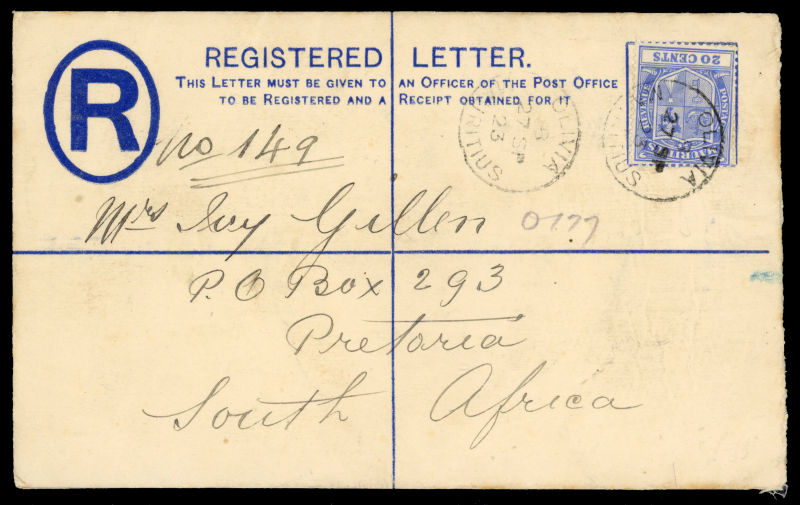 R
REGISTERED LETTER.
THIS LETTER MUST BE GIVEN TO AN OFFICER OF THE POST OFFICE
TO BE REGISTERED AND A RECEIPT OBTAINED FOR IT
20 CENTS
POSTAGE
MAURITIUS
OLIVIA
27 SP
23
MAURITIUS
OLIVIA
27 SP
23
MAURITIUS
No 149
Mrs Ivy Gillen
0177
P.O Box 293
Pretoria
South Africa